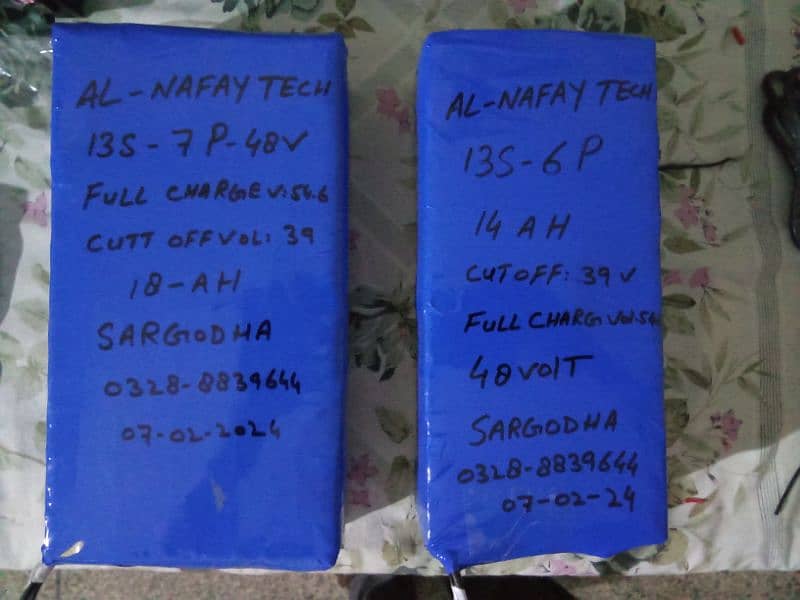 AL-NAFAY TECH
13S-7P-48V
FULL CHARGE V:54.6
CUTT OFF VOL: 39
18-AH
SARGODHA
0328-8839644
07-02-2024
AL-NAFAY TECH
13S-6P
14 AH
CUTOFF: 39 V
FULL CHARG VOL:54
48VOLT
SARGODHA
0328-8839644
07-02-24